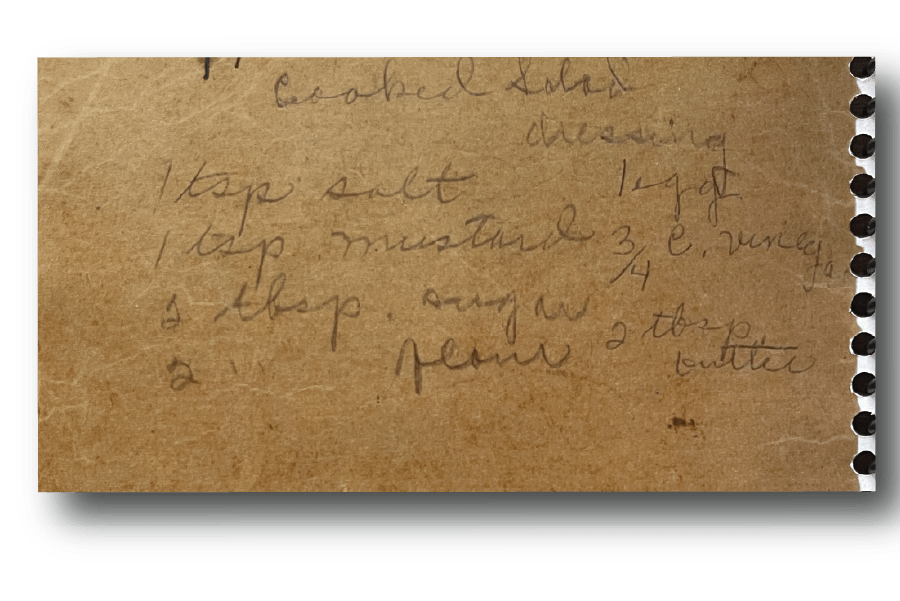 Cooked Salad
dressing
1 tsp salt 1 egg
1 tsp. mustard 3/4 C. vineg
2 tbsp. sugar 2 tbsp.
2 " flour butter